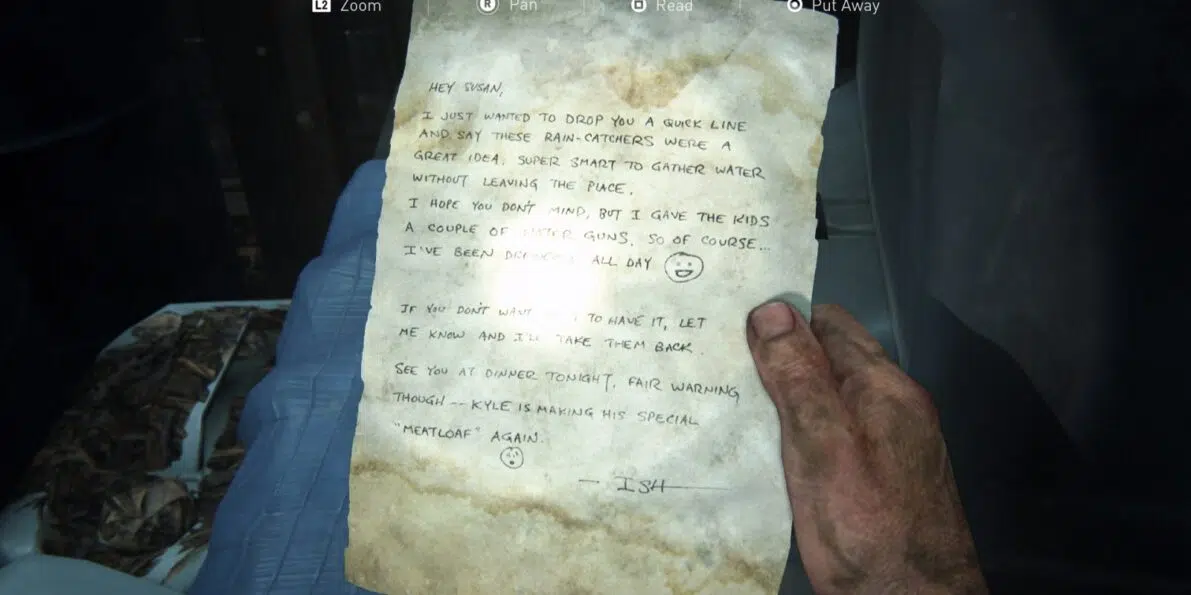 L2 Zoom
R Pan
Read
Put Away
HEY SUSAN,
I JUST WANTED TO DROP YOU A QUICK LINE
AND SAY THESE RAIN-CATCHERS WERE A
GREAT IDEA. SUPER SMART TO GATHER WATER
WITHOUT LEAVING THE PLACE.
I HOPE YOU DON'T MIND, BUT I GAVE THE KIDS
A COUPLE OF WATER GUNS. SO OF COURSE...
I'VE BEEN ALL DAY
IF YOU DON'T WANT TO HAVE IT, LET
ME KNOW AND I'LL TAKE THEM BACK.
SEE YOU AT DINNER TONIGHT. FAIR WARNING
THOUGH -- KYLE IS MAKING HIS SPECIAL
"MEATLOAF" AGAIN.
— ISH